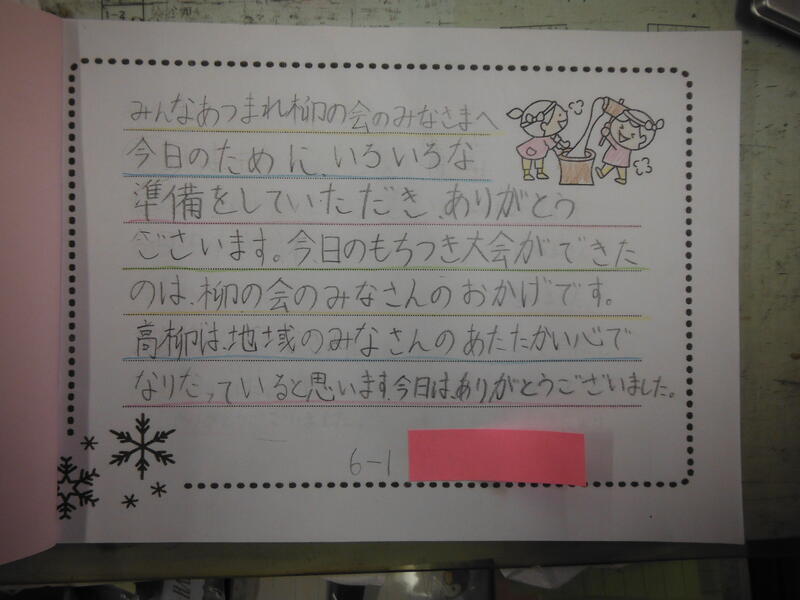 みんなあつまれ柳の会のみなさまへ
今日のために、いろいろな
準備をしていただき、ありがとう
ございます。今日のもちつき大会ができた
のは、柳の会のみなさんのおかげです。
高柳は、地域のみなさんのあたたかい心で
なりたっていると思います。今日は、ありがとうございました。
6-1